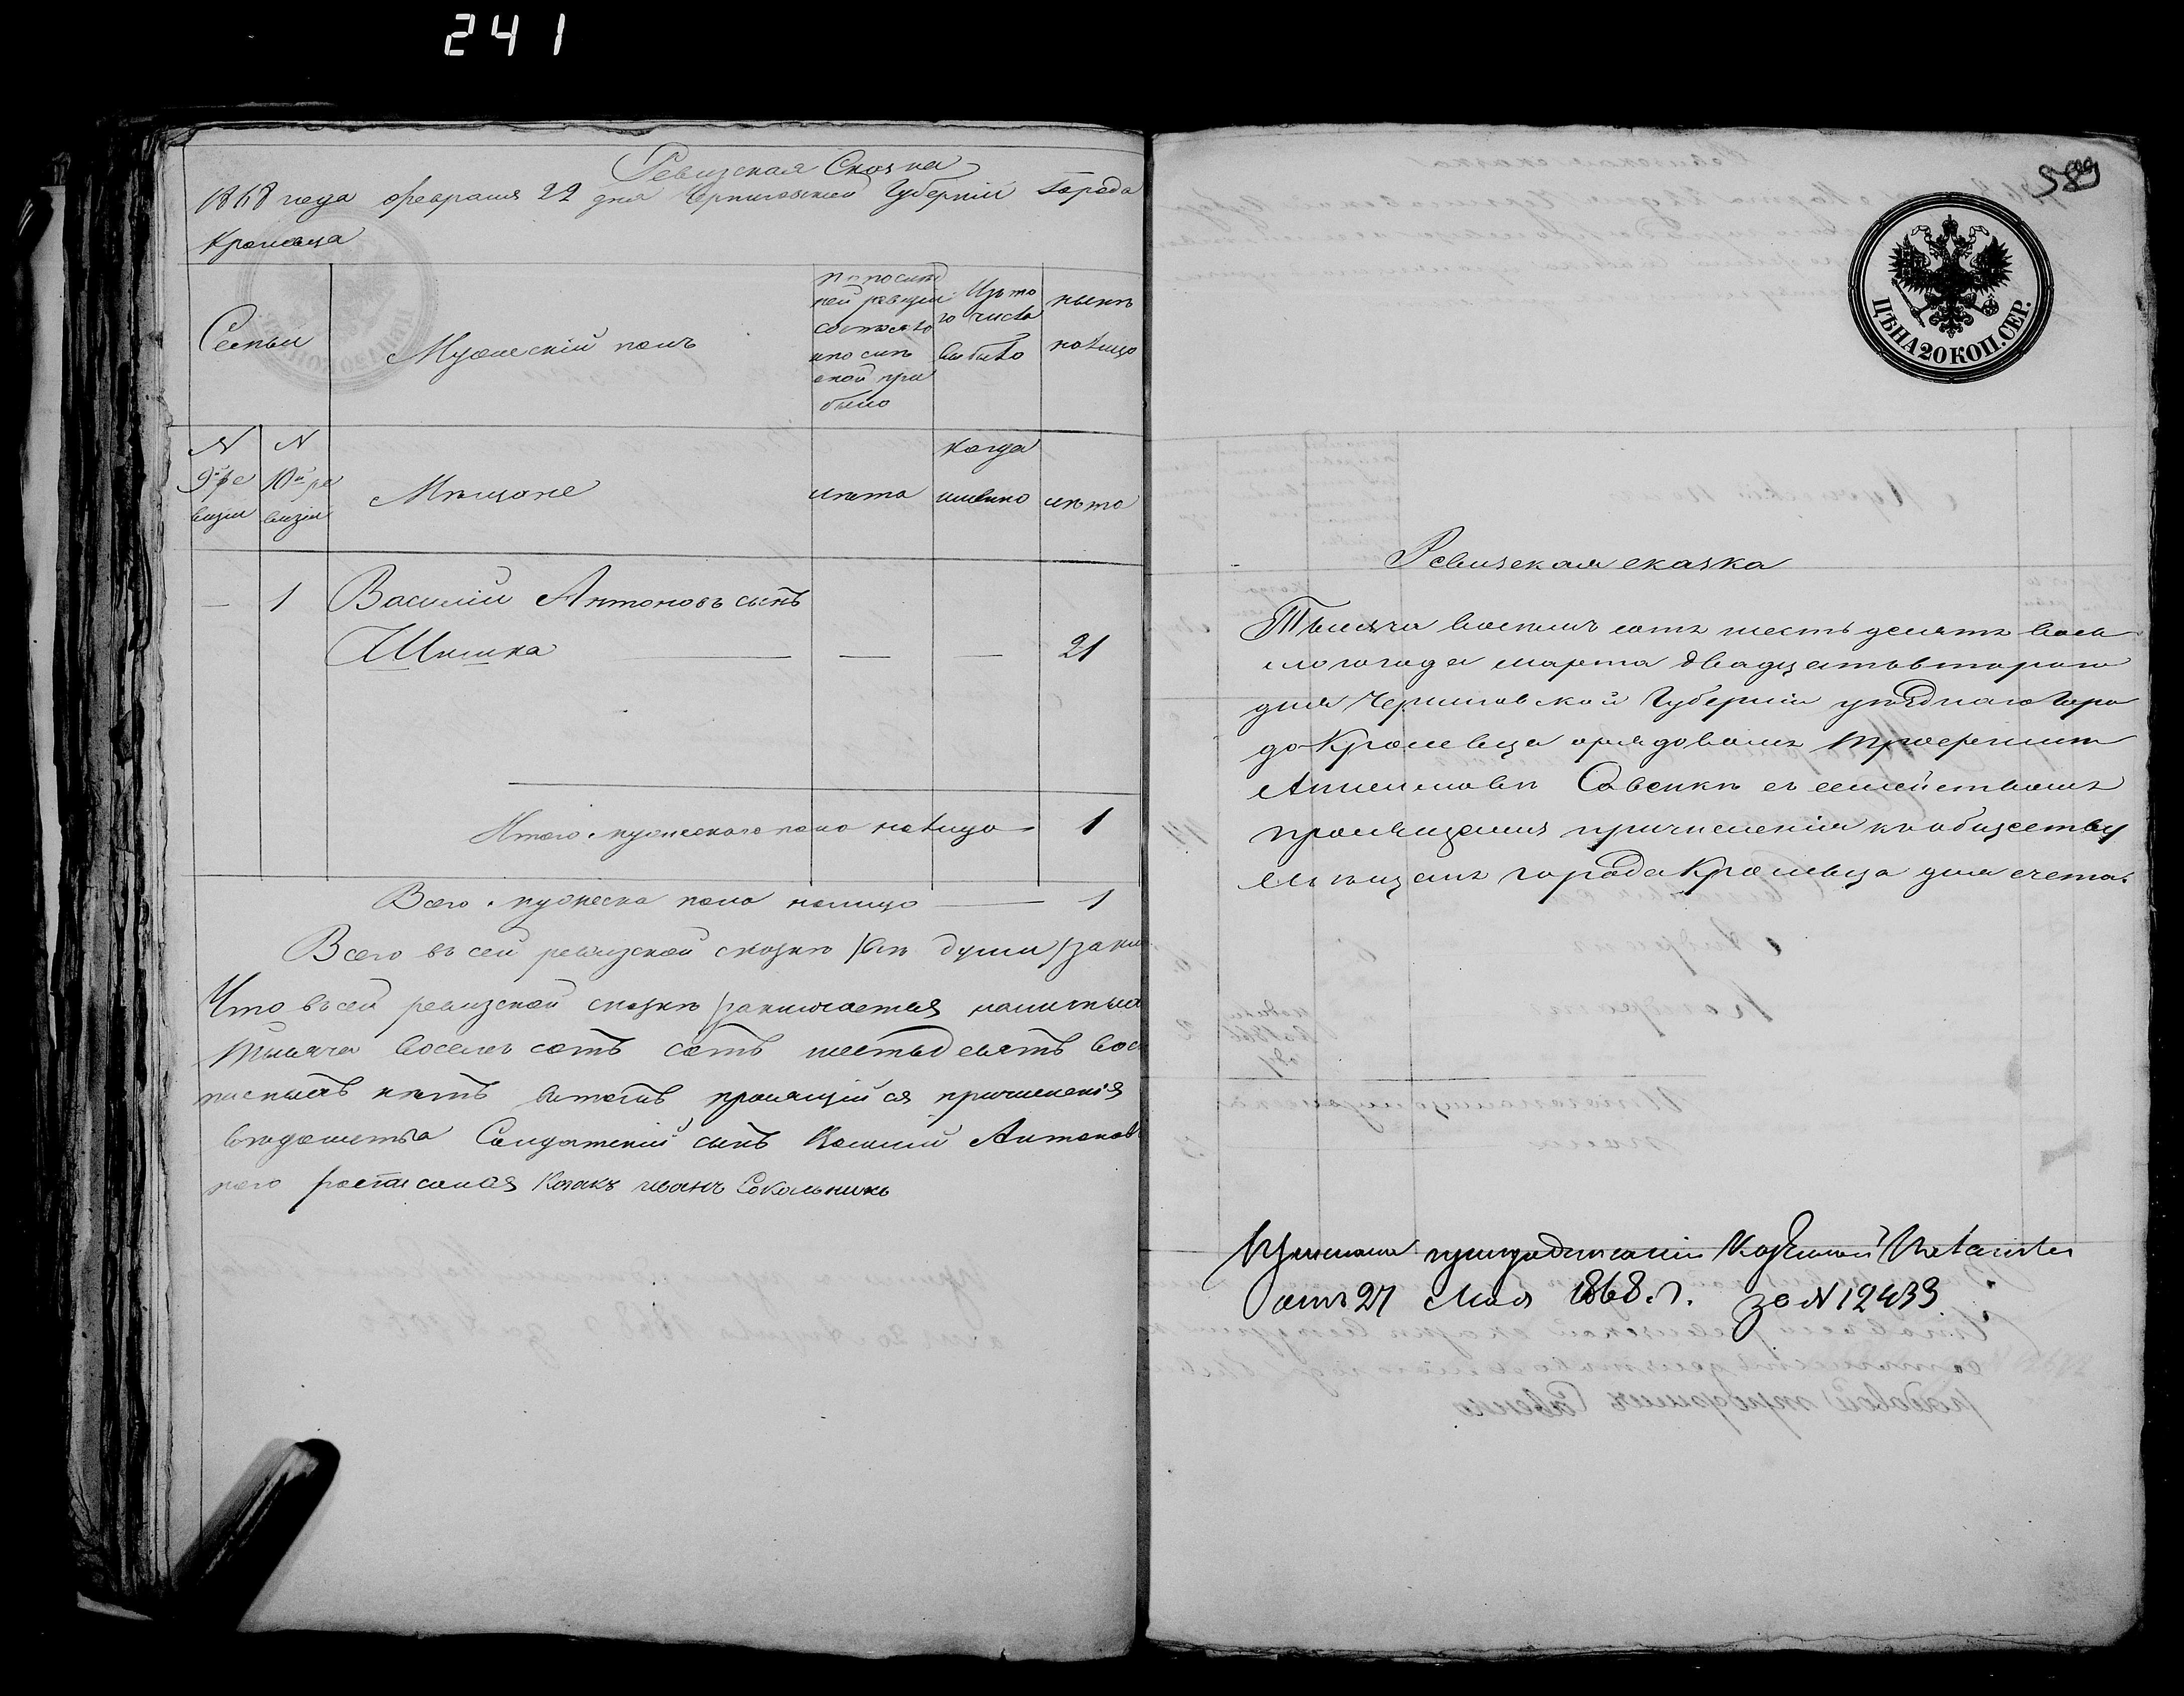 241
Ревизская Сказка
1868 года Февраля 22 дня Черниговской Губерніи Города
Кролевца
Семьи
Мужескій полъ
По послѣд
ней ревизіи
состояло
и послѣ
оной при
было
Изъ то
го числа
выбыло
нынѣ
налицо
N
9й ре
визіи
N
10й ре
визіи
Мѣщане
лѣта
когда
именно
лѣта
— 1 Василій Антоновъ сынъ
Шишка — — — 21
Итого мужескаго пола налицо 1
Всего мужеска пола налицо — 1
Всего въ сей ревизской сказкѣ душа
Что въ сей ревизской сказкѣ заключается
тысяча восемь сотъ сотъ шестьдесятъ вос
нѣтъ просящійся причисленія
Солдатскій сынъ Василій Антоновъ
него росписался Козакъ Иванъ Сокольникъ
589
ЦѢНА 20 КОП. СЕР.
Ревизская сказка
Тысяча восемь сотъ шестьдесятъ вось
могогода марта двадцатьвтораго
дня Черниговской Губерніи уѣзднаго горо
да Кролевца орядовомъ Трофиму
Савенкѣ съ семействомъ
причисленія къ обществу
мѣщанъ города Кролевца для счета.
Казенной Палаты
отъ 27 Мая 1868 г. за N 12439